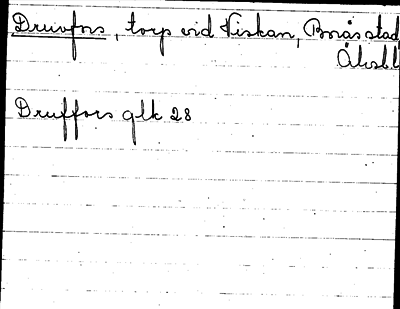 Druvfors, torp vid Viskan, Borås stad
Älvsbl
Druffors glk 28